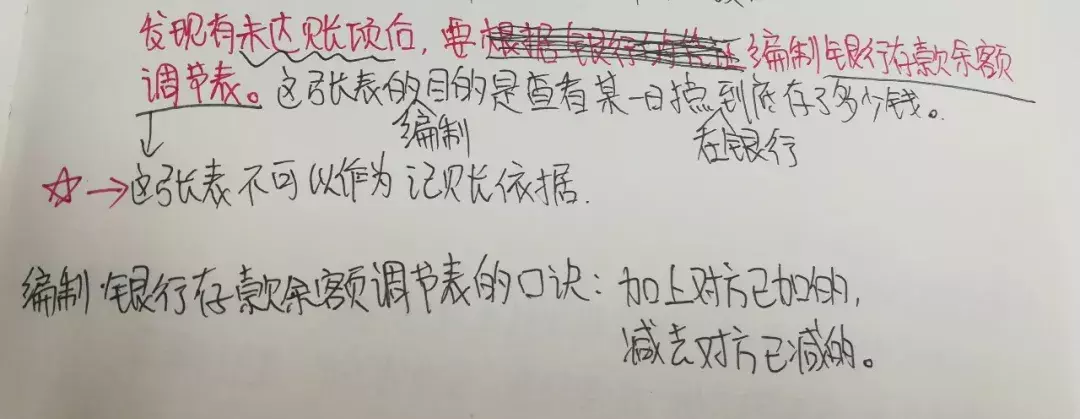 发现有未达账项后，要编制银行存款余额
调节表。这张表的编制目的是查看某一日我在银行到底存了多少钱。
☆→这张表不可以作为记账依据.
编制银行存款余额调节表的口诀：加上对方已加的，
减去对方已减的。